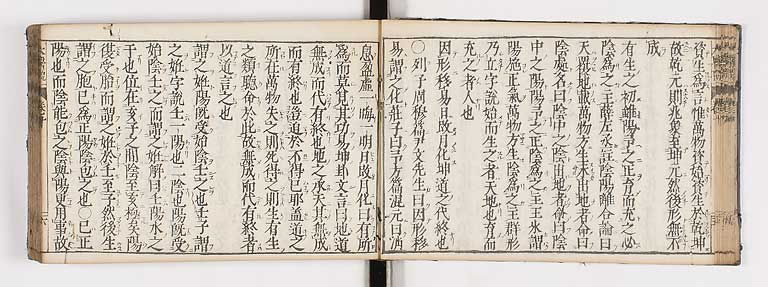 資生爲言惟萬物資始資生於乾坤
故乾元則兆衆至坤元然後形無不
成
有生之初雖陽予之正育而充之必
陰爲之主薛左丞註陰陽離合論曰
天覆地載萬物方生未出地者命曰
陰處名曰陰中之陰出地者命曰陰
中之陽陽予之正陰爲之主王氷謂
陽施正氣萬物方生陰爲之主群形
乃立字說始而生之者天地也育而
充之者人也
因形移易日改月化坤道之代終也
○列子周穆篇尹文先生曰因形移
易謂之化莊子曰子方篇混元曰消
息盈虛一晦一明日改月化曰有所
爲而莫見其功易坤卦文言曰地道
無成而代有終也地之承天其無成
而有終也蓋迫於不得已耶蓋道之
所在萬物失之則死得之則生有生
之類聽命於此故無成而代有終者
以道言之也
謂之姙陽既受始陰壬之也壬子謂
之姙字說壬一陽也二陰也陽既受
始陰壬之而謂之姙解曰壬陽水之
干也位在亥子之間陰至亥極矣陽
復受胎而謂之姙於壬至子然後生
謂之胞巳爲正陽陰包之也○巳正
陽也而陰能包之陰與陽更用事故